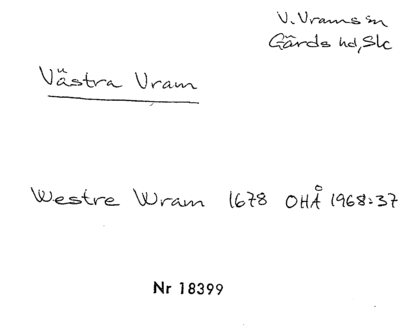 V. Vrams sn
Gärds hd, Slc
Västra Vram
Westre Wram 1678 OHÅ 1968:37
Nr 18399